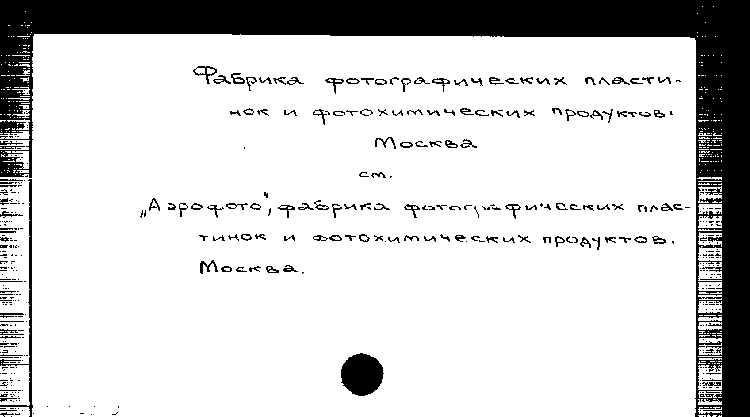 Фабрика фотографических пласти-
нок и фотохимических продуктов.
Москва
см.
„Аэрофото", фабрика фотографических плас-
тинок и фотохимических продуктов.
Москва.